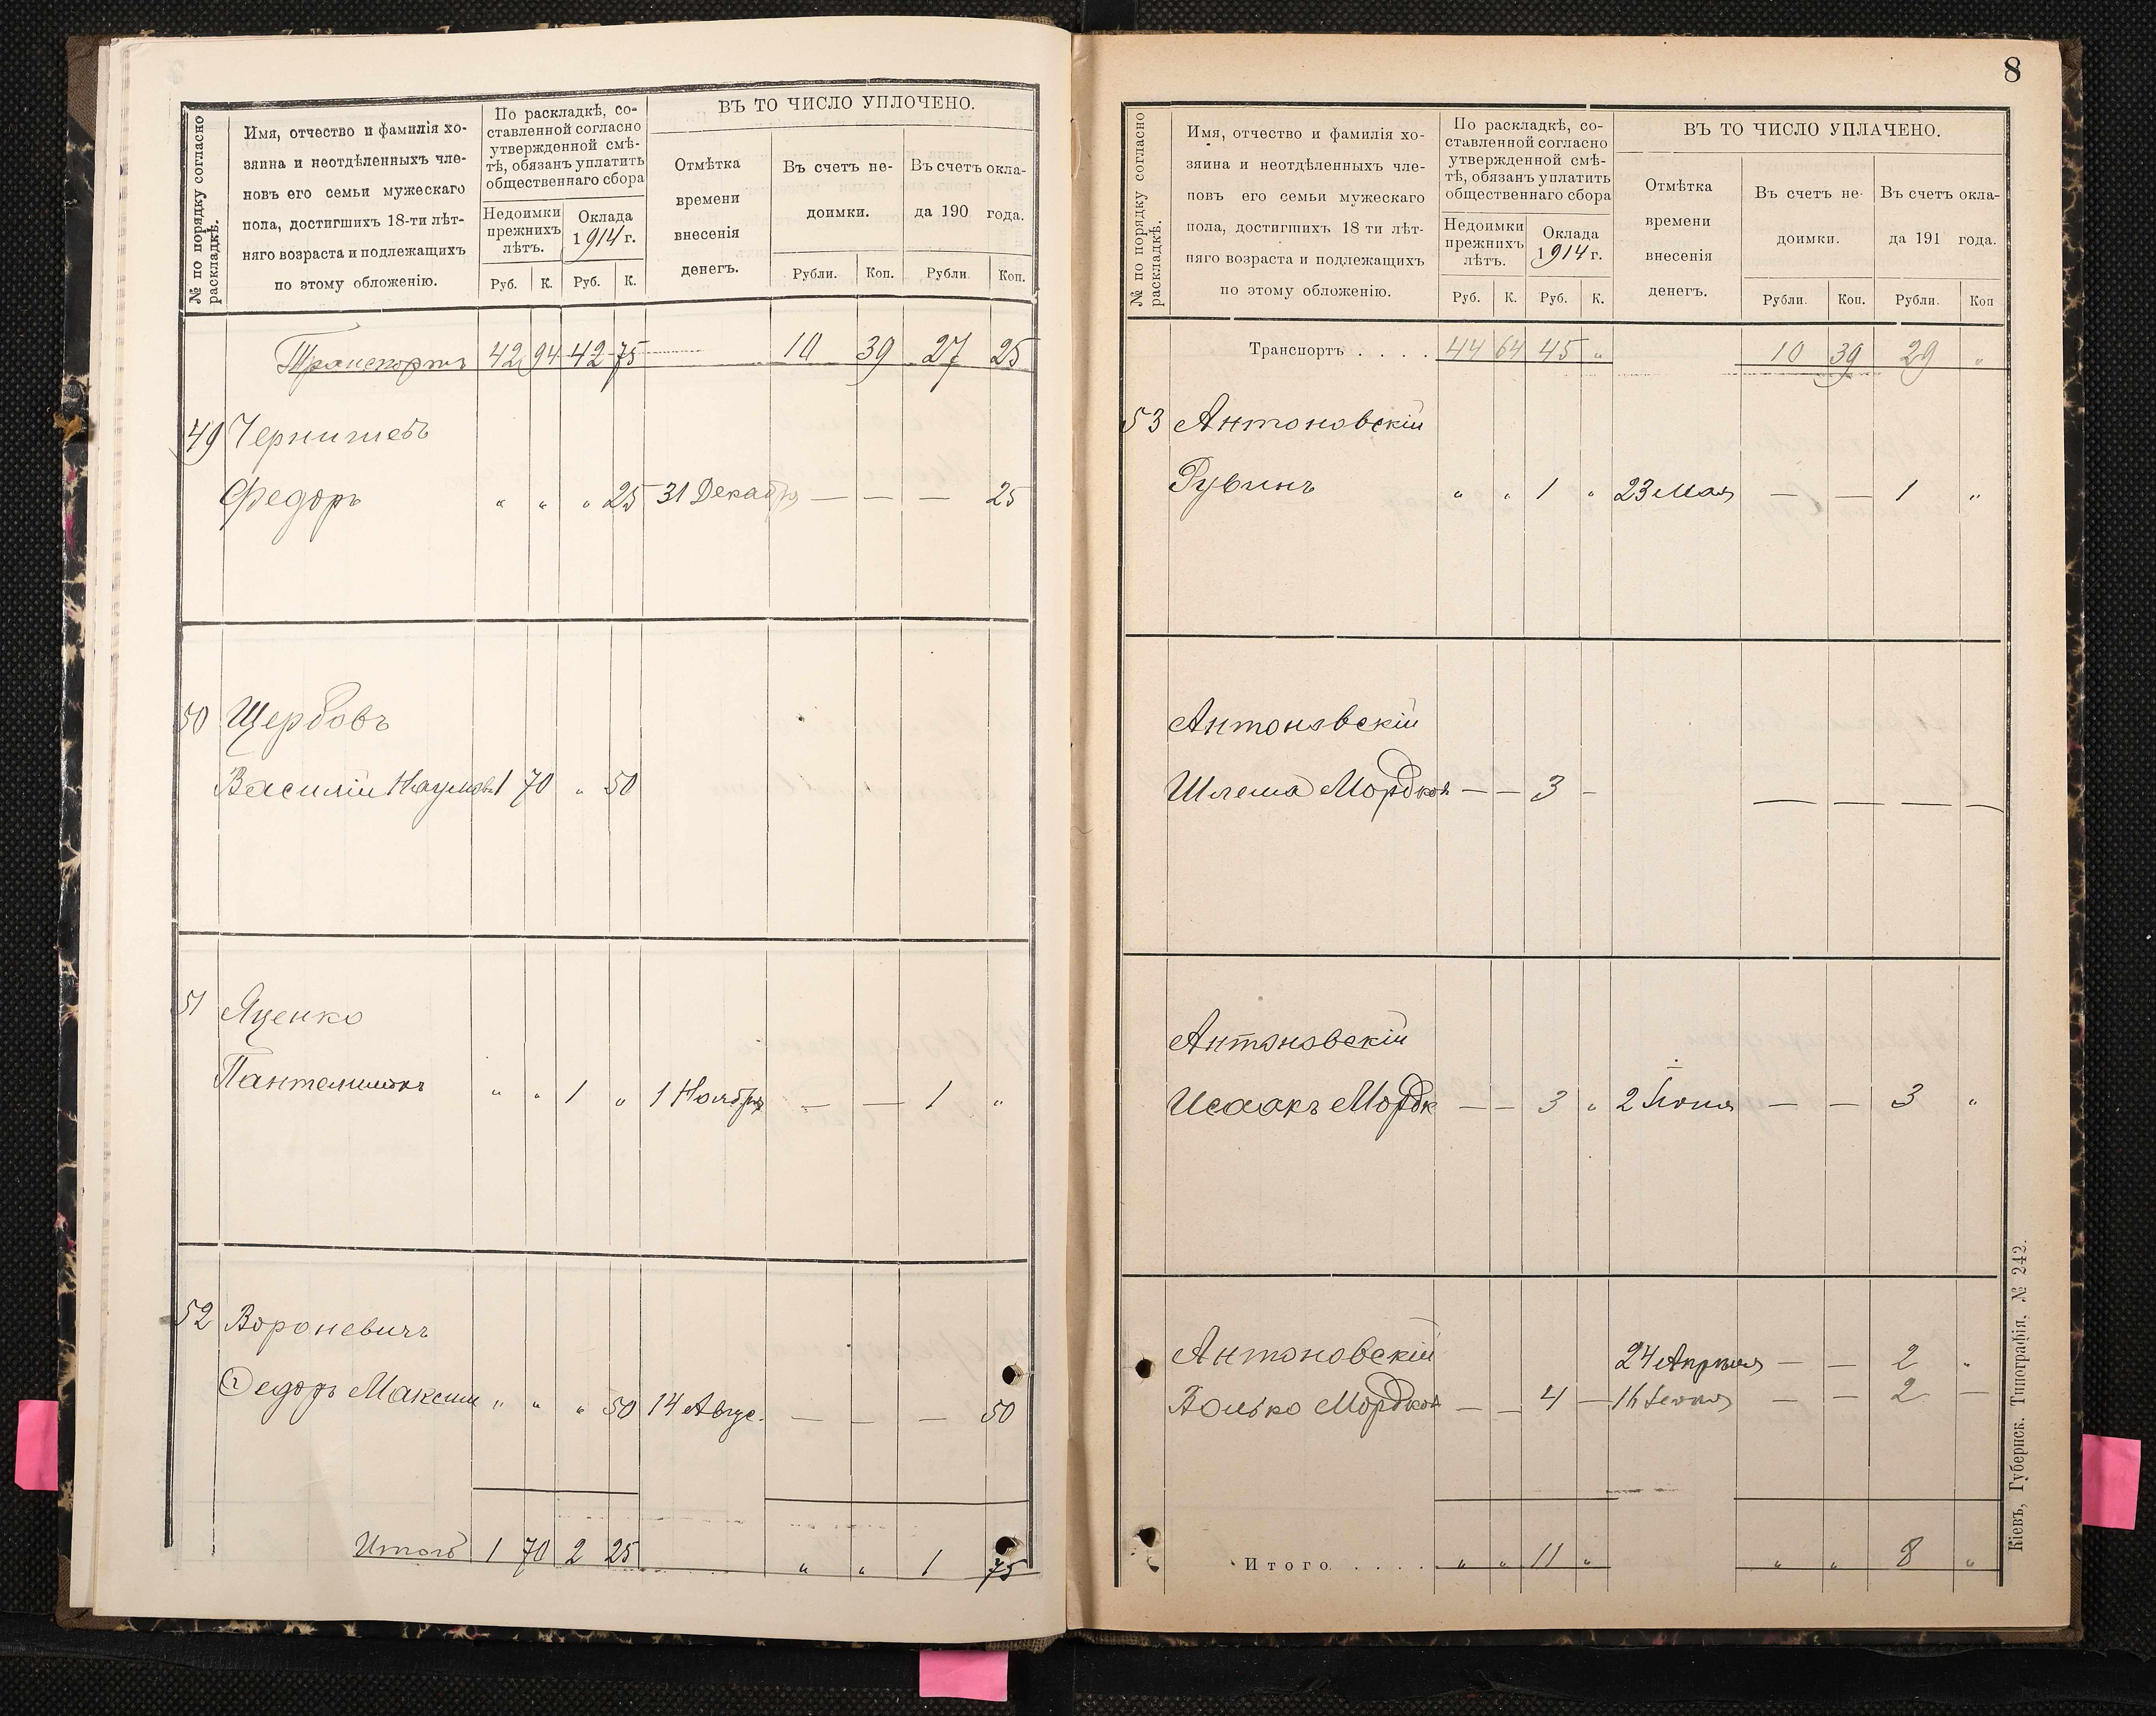 № по порядку согласно раскладкѣ.
Имя, отчество и фамилія хо-
зяина и неотдѣленныхъ чле-
новъ его семьи мужескаго
пола, достигшихъ 18-ти лѣт-
няго возраста и подлежащихъ
по этому обложенію.
По раскладкѣ, со-
ставленной согласно
утвержденной смѣ-
тѣ, обязанъ уплатить
общественнаго сбора
Недоимки
прежнихъ
лѣтъ.
Оклада
1914 г.
Руб. К. Руб. К.
ВЪ ТО ЧИСЛО УПЛОЧЕНО.
Отмѣтка
времени
внесенія
денегъ.
Въ счетъ не-
доимки.
Въ счетъ окла-
да 190 года.
Рубли. Коп. Рубли Коп.
Транспортъ 42 94 42 75 10 39 27 25
49 Чернишевъ
Федоръ " " " 25 31 Декабря — — — 25
50 Щербовъ
Василій Наумовъ 1 70 " 50
51 Яценко
Пантелимонъ " " 1 " 1 Ноября — — 1 "
52 Вороневичъ
Федоръ Максим " " " 50 14 Авгус. — — — 50
Итого 1 70 2 25 " " 1 75
8
№ по порядку согласно раскладкѣ.
Имя, отчество и фамилія хо-
зяина и неотдѣленныхъ чле-
новъ его семьи мужескаго
пола, достигшихъ 18 ти лѣт-
няго возраста и подлежащихъ
по этому обложенію.
По раскладкѣ, со-
ставленной согласно
утвержденной смѣ-
тѣ, обязанъ уплатить
общественнаго сбора
Недоимки
прежнихъ
лѣтъ.
Оклада
1914 г.
Руб. К. Руб. К.
ВЪ ТО ЧИСЛО УПЛАЧЕНО.
Отмѣтка
времени
внесенія
денегъ.
Въ счетъ не-
доимки.
Въ счетъ окла-
да 191 года.
Рубли. Коп. Рубли. Коп
Транспортъ . . . . 44 64 45 " 10 39 29 "
53 Антоновскій
Рувинъ " " 1 " 23 Мая — — 1 "
Антоновскій
Шлема Мордков — — 3 - — — — —
Антоновскій
Исаакъ Мордк — — 3 " 2 Іюня — — 3 "
Антоновскій 24 Апрѣля — — 2 "
Волько Мордков — — 4 — 16 Іюня — — 2 —
Итого. . . . . " " 11 " " " 8 "
Кіевъ, Губернск. Типографія. № 242.